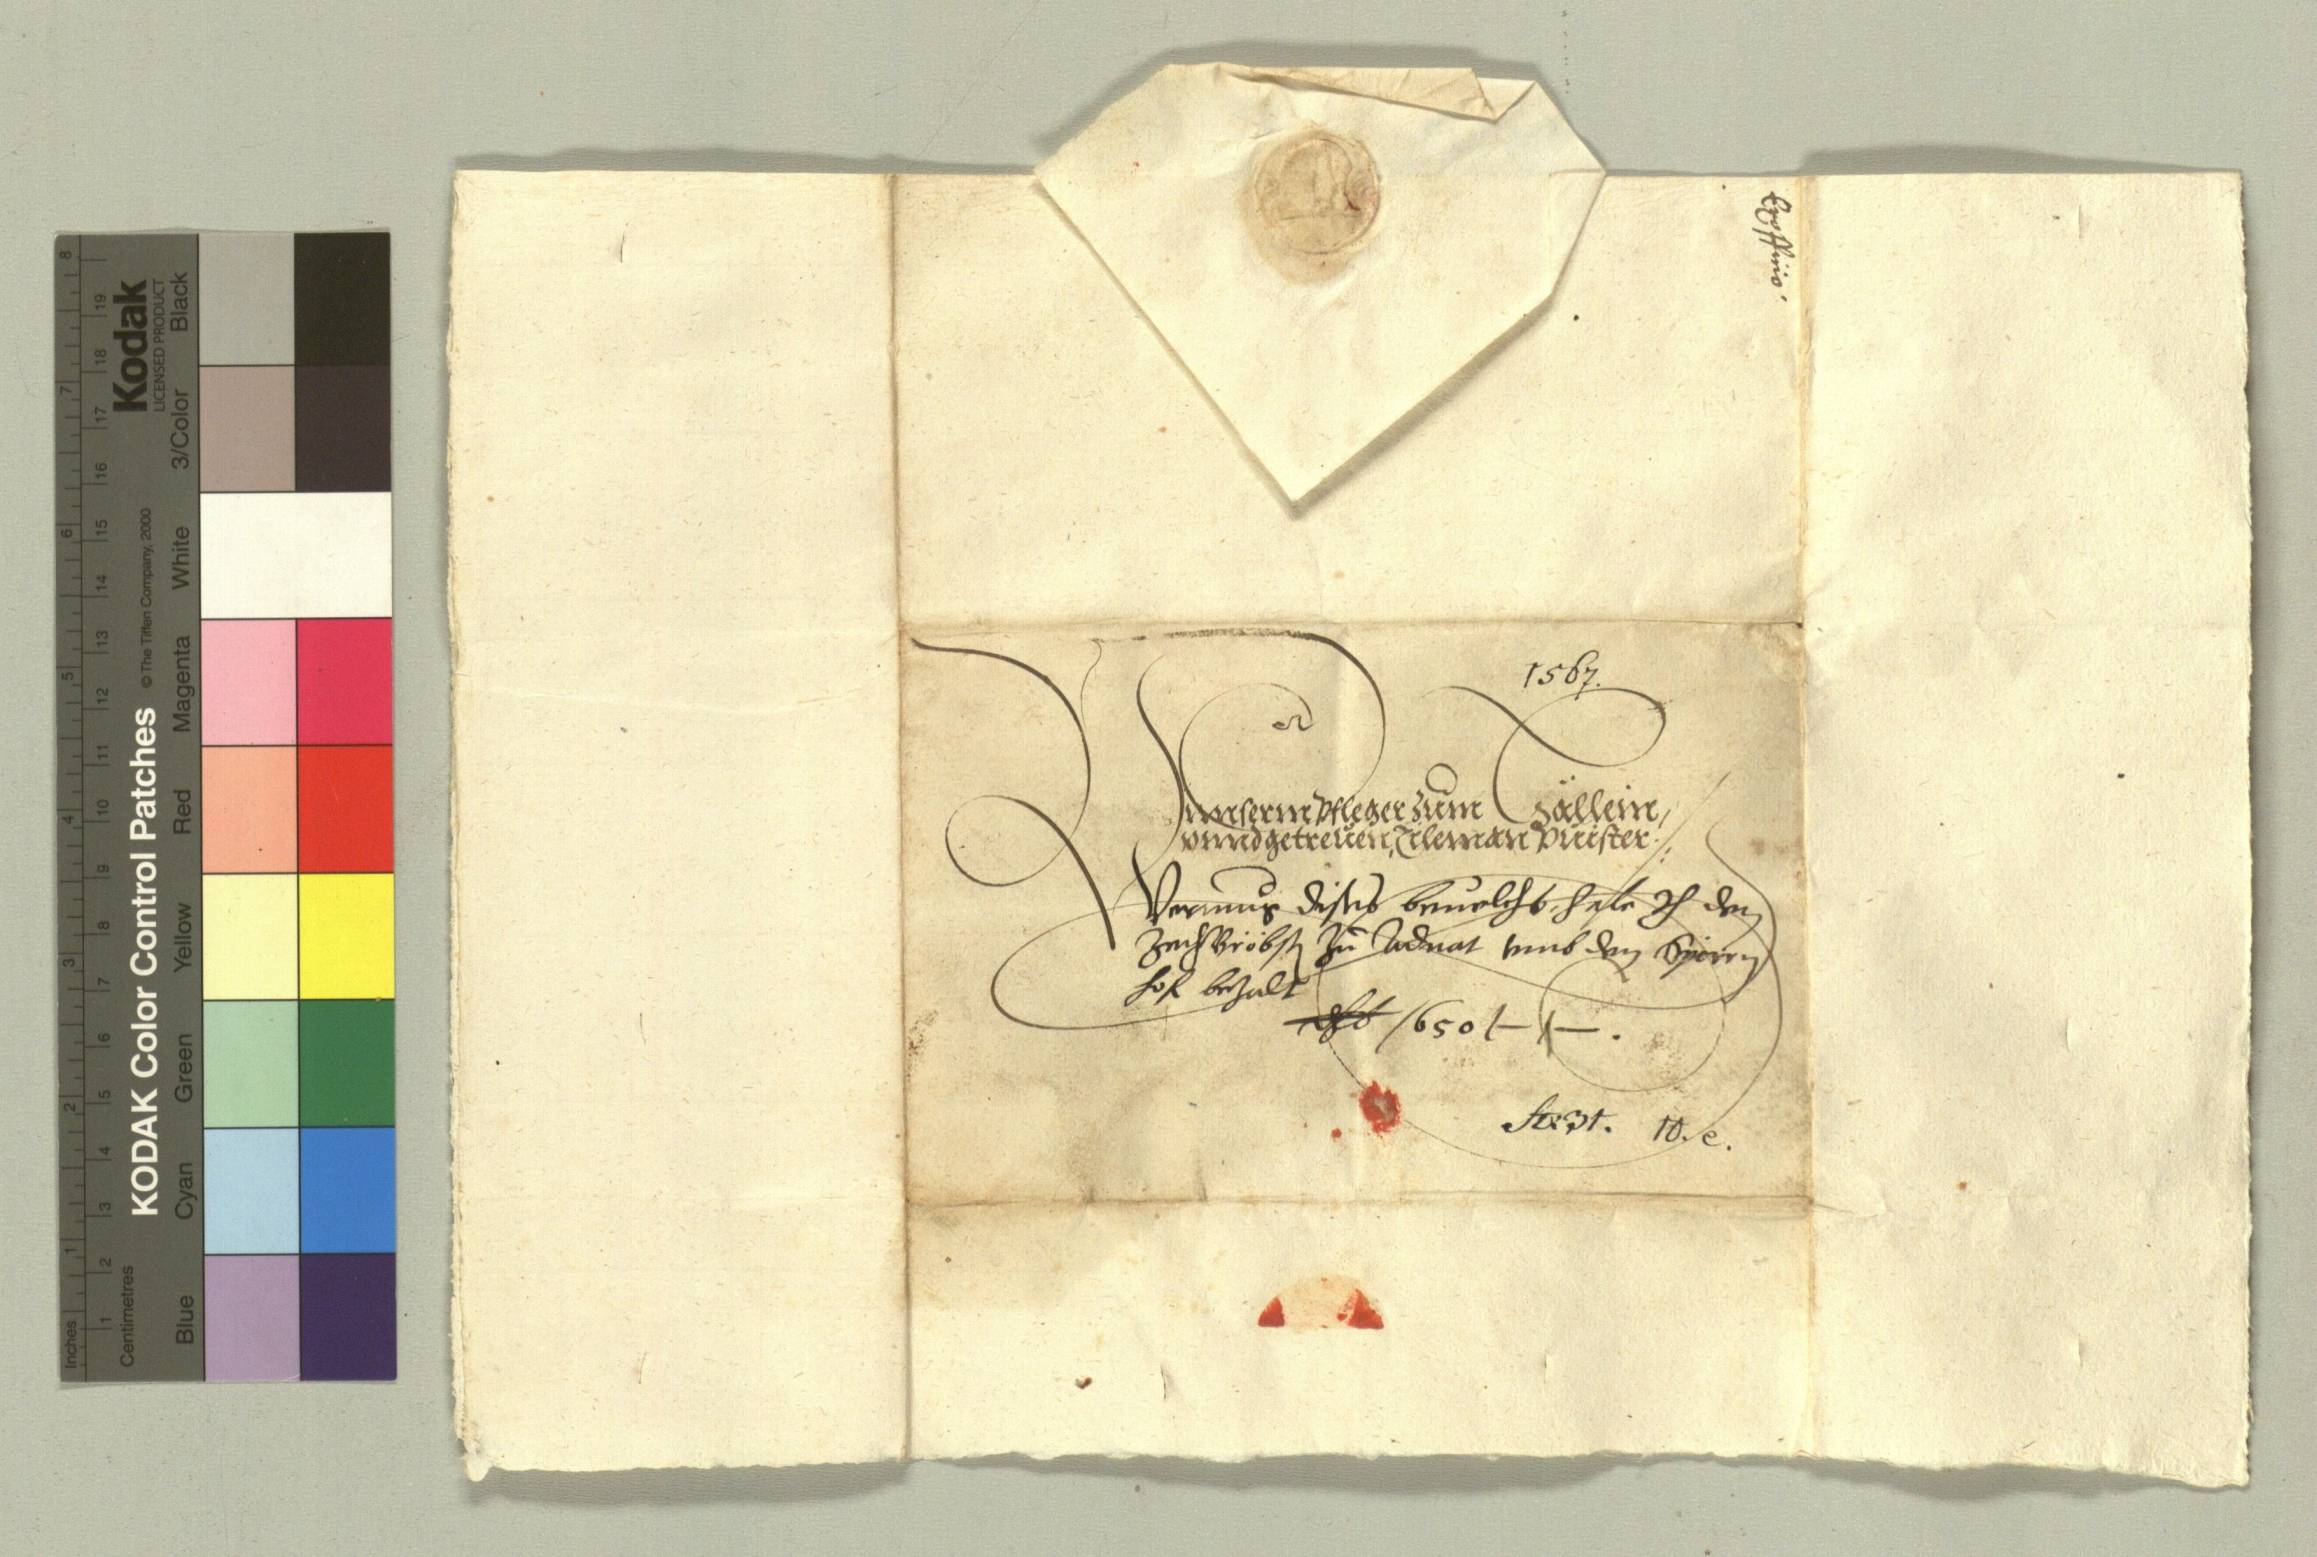 1567.
Unnserm Pfleger zum Zällein,
vnnd getreuen, Tileman Priester.
Vermug dises beuelchs habe Ich den
Zechbröbst zu Adnat vmb den
hof bezalt
650
Kodak
LICENSED PRODUCT
KODAK Color Control Patches
© The Tiffen Company, 2000
Blue Cyan Green Yellow Red Magenta White 3/Color Black
Inches 1 2 3 4 5 6 7 8
Centimetres 1 2 3 4 5 6 7 8 9 10 11 12 13 14 15 16 17 18 19